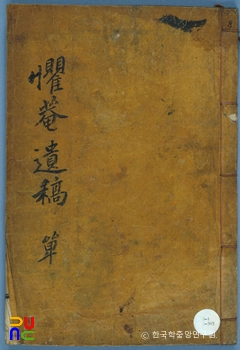 懼菴遺稿 單
© 한국학중앙연구원